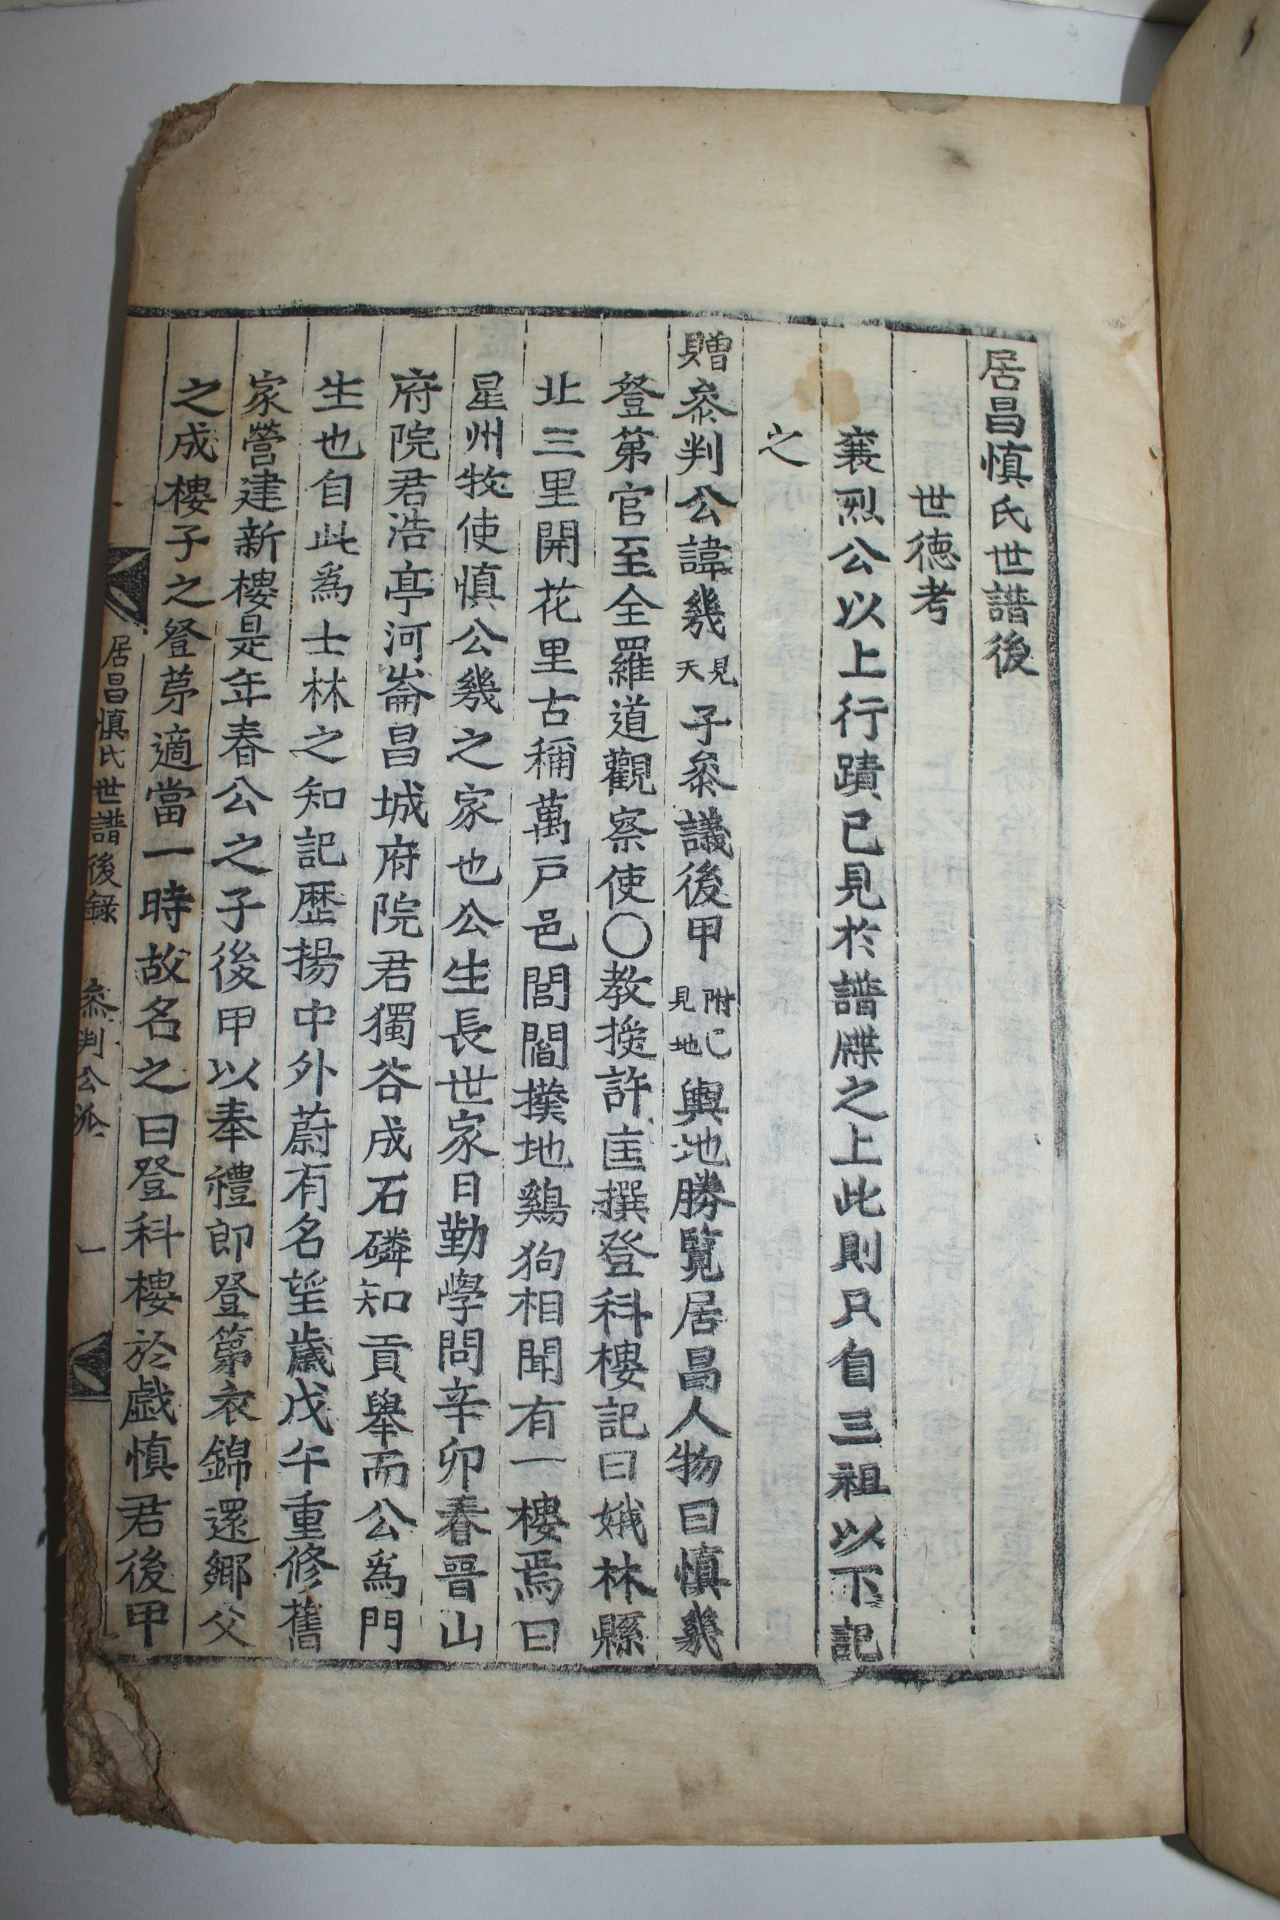 居昌愼氏世譜後
世德考
襄烈公以上行蹟已見於譜牒之上此則只自三祖以下記
之
贈叅判公諱幾見天子叅議後甲附見已地輿地勝覽居昌人物曰愼幾
登第官至全羅道觀察使○敎授許㞷撰登科樓記曰娥林縣
北三里開花里古稱萬戶邑閭閻撲地鷄狗相聞有一樓焉曰
星州牧使愼公幾之家也公生長世家日勤學問辛卯春晋山
府院君浩亭河崙昌城府院君獨谷成石磷知貢擧而公爲門
生也自此爲士林之知記歷揚中外蔚有名望歲戊午重修舊
家營建新樓是年春公之子後甲以奉禮郞登第衣錦還鄕父
之成樓子之登第適當一時故名之曰登科樓於戱愼君後甲
居昌愼氏世譜後錄 叅判公派 一